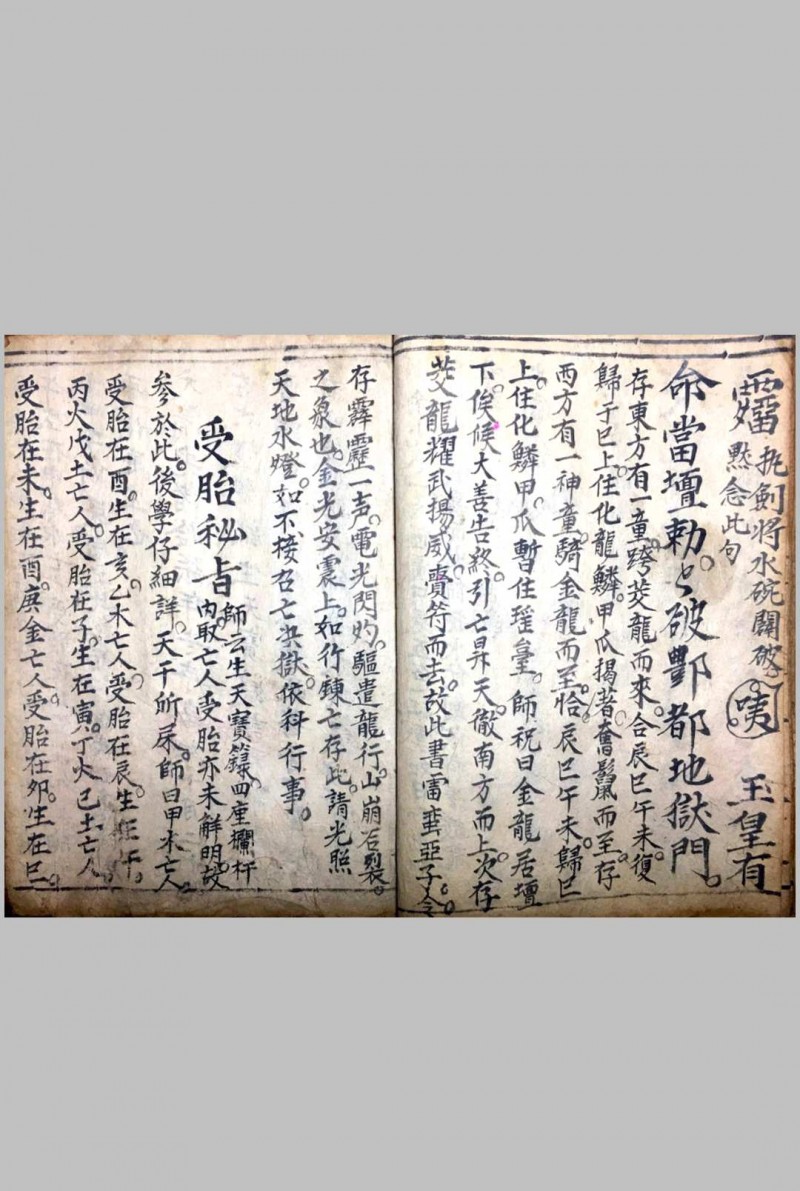 執劍將水碗闢破 玉皇有
默念此句
命當壇勅〻破酆都地獄門。
存東方有一童跨茭龍而來。合辰巳午未。復
歸于巳上。住化龍鱗甲爪揭著。奮鬣而至。存
西方有一神童。騎金龍而至。恰辰巳午未。歸巳
上。住化鱗甲。爪暫住瑤臺。師祝曰金龍居壇
下。俟候大善告終。引亡昇天。徹南方而上。次存
茭龍耀武揚威。賫符而去。故此書雷 亞子。令。
存霹靂一声。電光閃灼。驅遣龍行。山崩石裂。
之象也。金光安震上。如行鍊亡存此。請光照
天地水燈。如不接召亡決獄。依科行事。
受胎秘旨 師云生天寶籙。四座欄杆
内取亡人受胎亦未解明。故
參於此。後學仔細詳。天干所 。師曰甲木亡人
受胎在酉。生在亥。乙木亡人受胎在辰。生在午。
丙火戊土亡人。受胎在子。生在寅。丁火己土亡人
受胎在未。生在酉。庚金亡人受。胎在夘。生在巳。